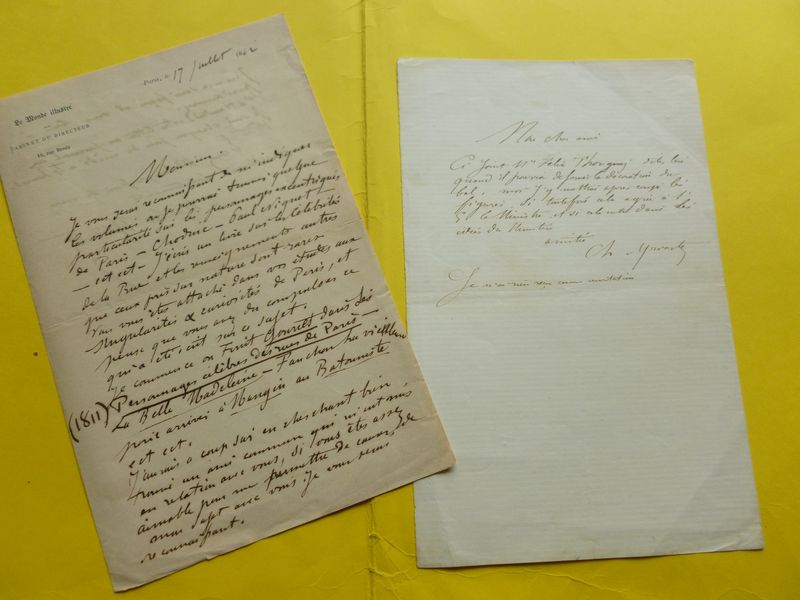 Paris, le 17 Juillet 1862
Le Monde illustré
CABINET DU DIRECTEUR
15, rue Breda
Monsieur
Je vous serai reconnaissant de m'indiquer
les volumes où je pourrai trouver quelque
particularité sur les personnages excentriques
de Paris - Chodruc -
ect ect - J'écris un livre sur les Célébrités
de la Rue et les renseignements autres
que ceux pris sur nature sont rares
vous vous êtes attaché dans vos études aux
singularités & curiosités de Paris, et
pense que vous avez du compulser ce
qui a été écrit sur ce sujet.
Je commence où Finit Gouriet dans ses
(1811) Personnages célèbres des rues de Paris -
La Belle Madeleine - Fanchon la vielleuse
pour arriver à Mangin au Batonniste
ect ect.
J'aurais à coup sûr en cherchant bien
trouvé un ami commun qui m'eut mis
en relation avec vous, si vous êtes assez
aimable pour me permettre de causer de
mon sujet avec vous. Je vous serai
reconnaissant.
Mon cher ami
Ci joint Mr Félix
quand il pourra de la décoration du
bal, moi j'y mettrai après les
figures. Si agrée à
le Ministre et si cela entre dans les
idées du
amitiés
Ch
Je n'ai rien reçu comme invitation